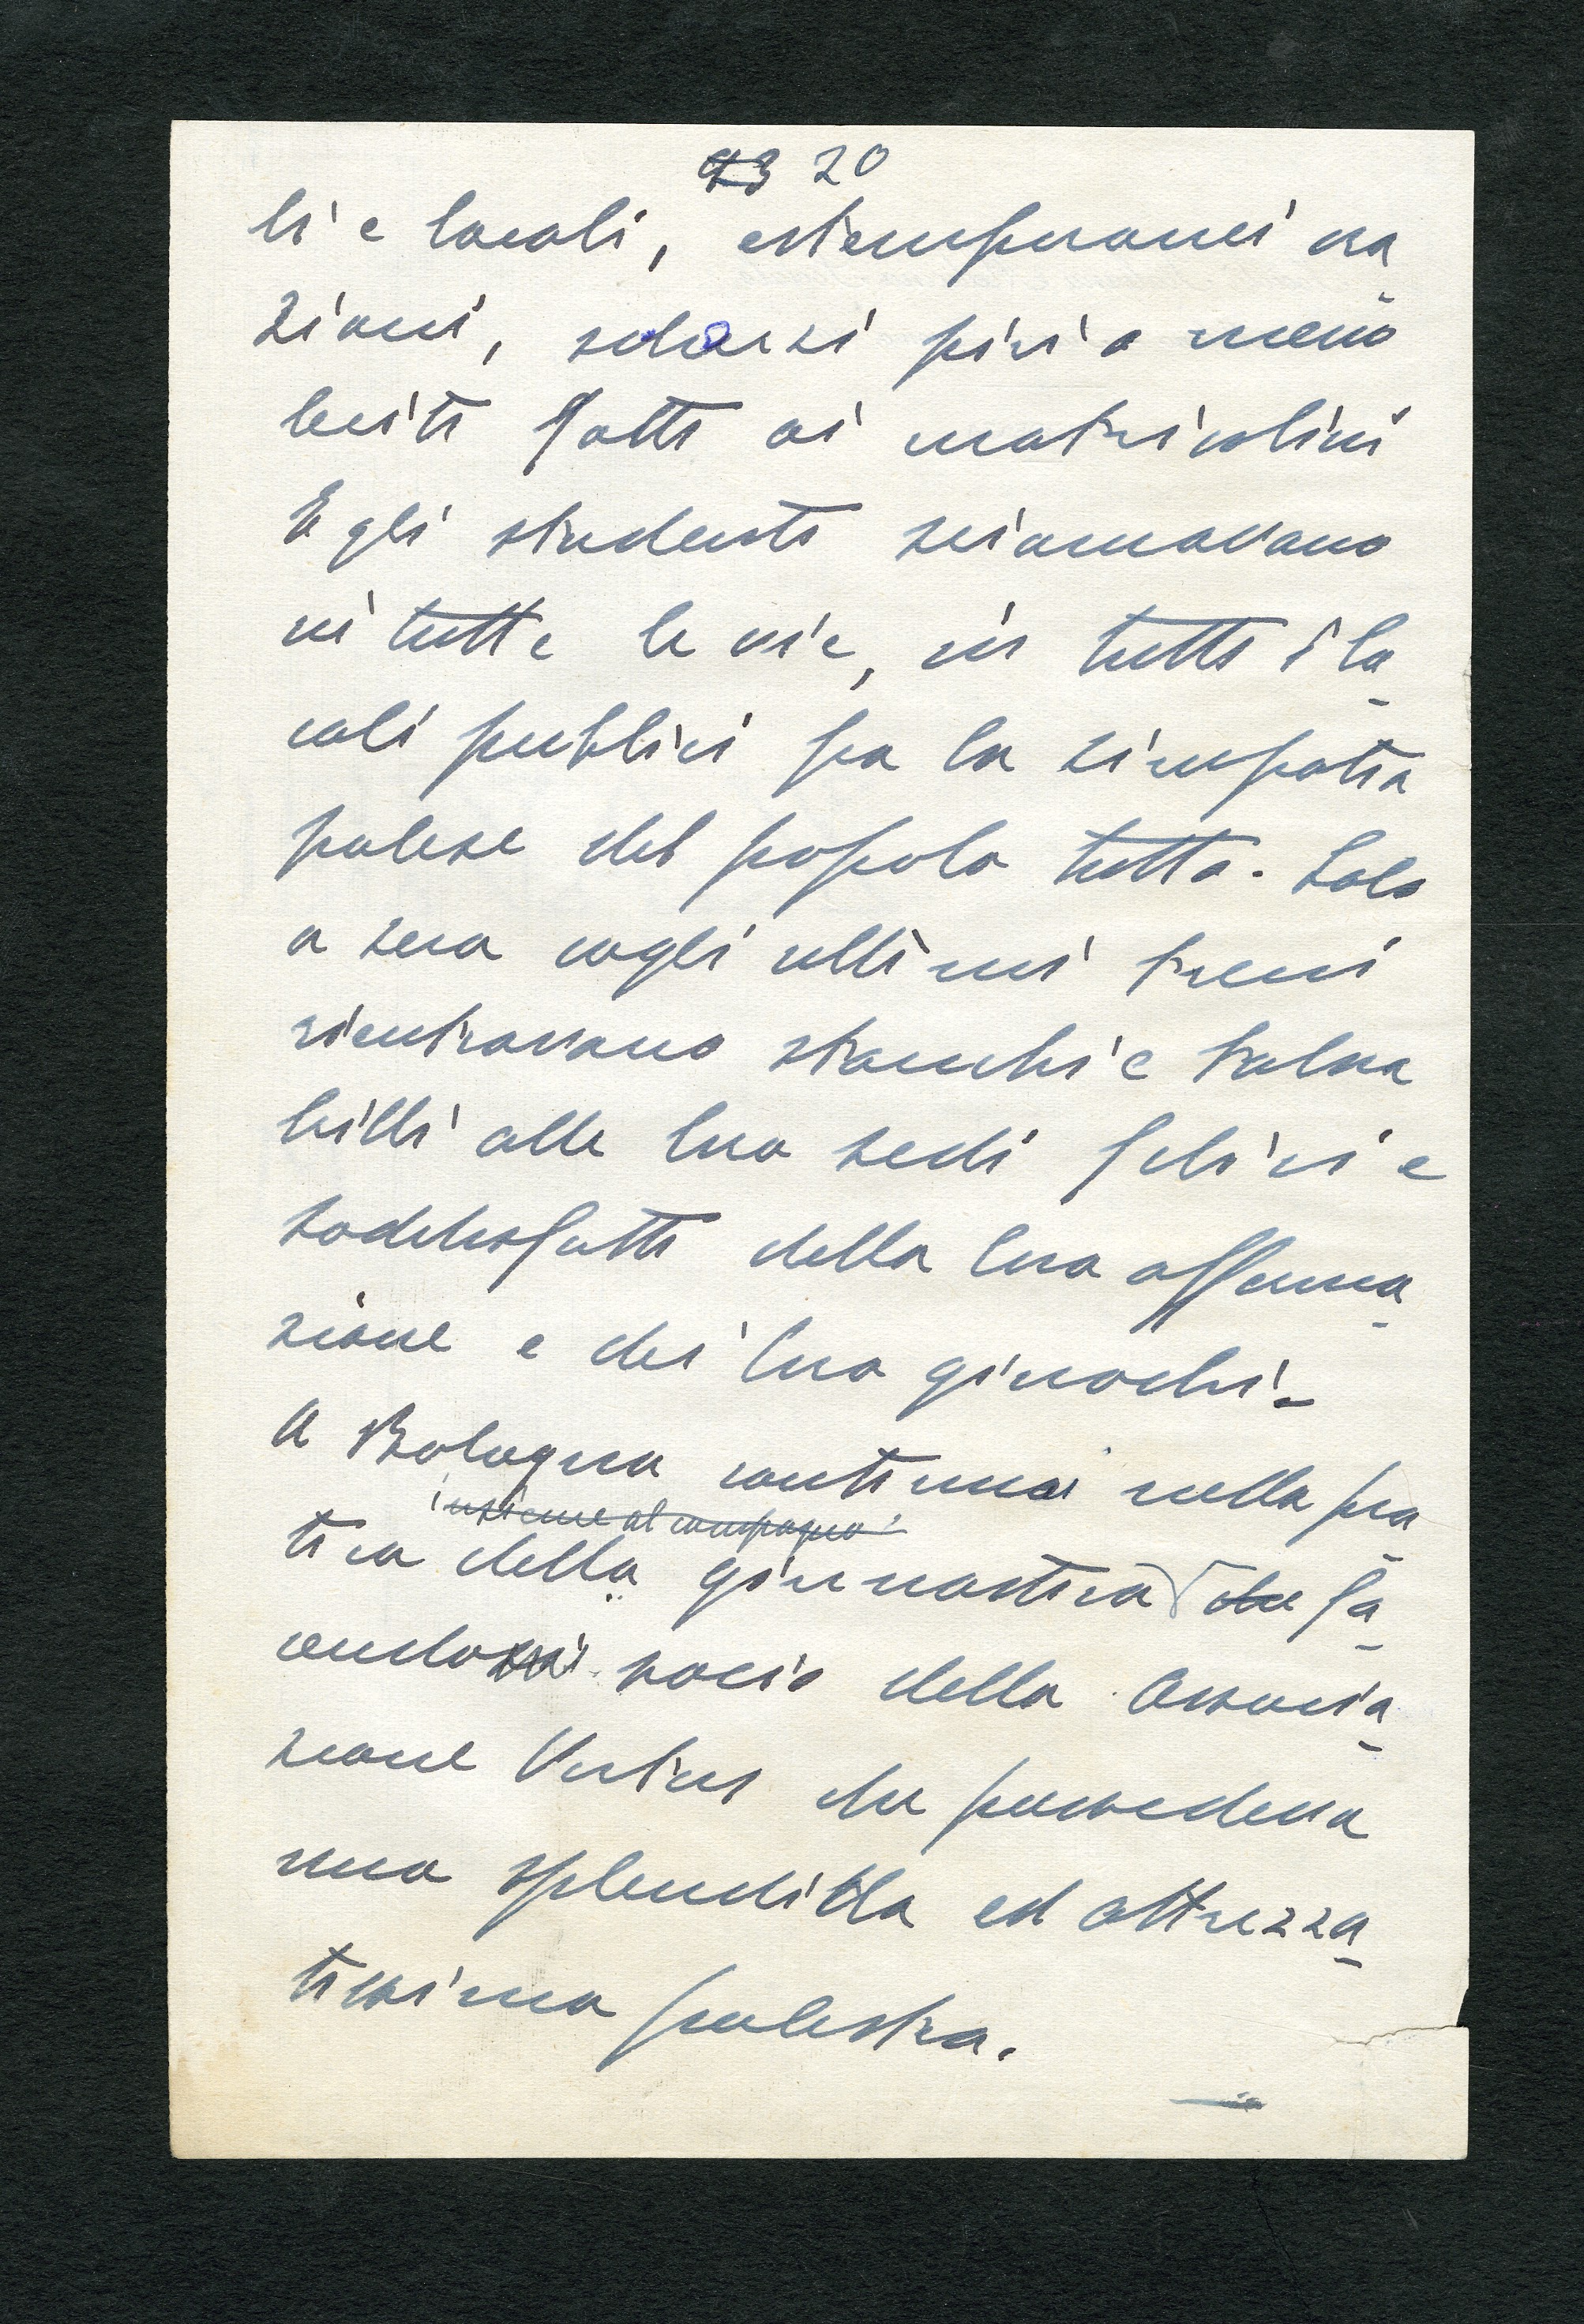 20
li e locali, estemporanei ora
zioni, scherzi più o meno
leciti fatti ai matricolini
E gli studenti sciamavano
in tutte le vie, in tutti i lo
cali pubblici fra la simpatia
palese del popolo tutto. Solo
a sera cogli ultimi treni
rientravano stanchi e talva
brilli alle loro sedi felici e
soddisfatti della loro afferma
zione e dei loro giuochi.
A Bologna continuai nella pra
insieme al compagno
tica della ginnastica che fa
cendomi socio della Associa
zione Virtus che possedeva
una splendida ed attrezza
tissima palestra.